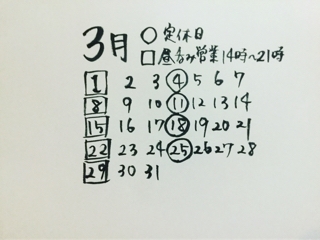 3月 ○定休日
□昼呑み営業14時〜21時
1 2 3 4 5 6 7
8 9 10 11 12 13 14
15 16 17 18 19 20 21
22 23 24 25 26 27 28
29 30 31